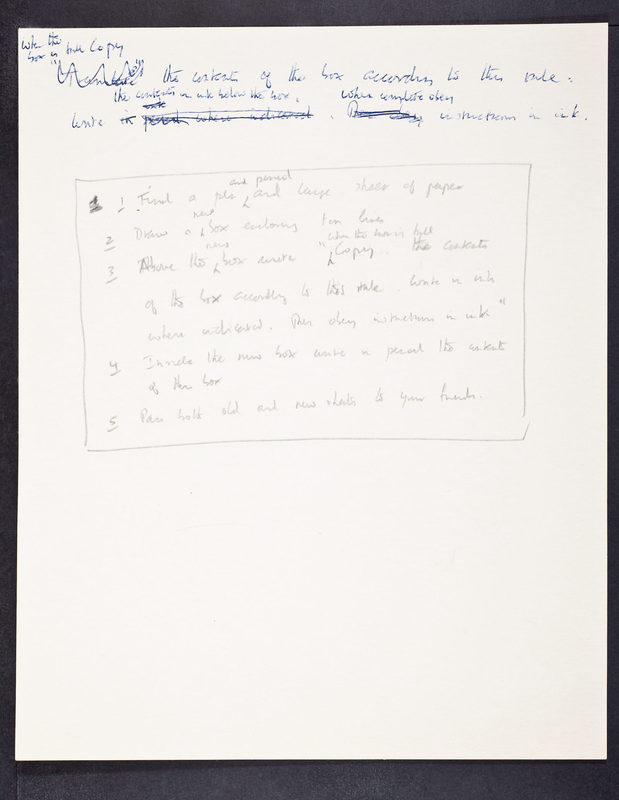 when the
box is full Copy
the contents of the box according to this rule:
the contents in ink below the box. When complete obey
write in pencil where indicated. Then obey instructions in ink.
and pencil
1 Find a and large sheet of paper
new
2 Draw a box enclosing ten lines
new when the box is full
3 Above the box write "Copy the contents
of the box according to this rule. Write in ink
where indicated. Then obey instructions in ink"
4 Inside the new box write in pencil the contents
of this box
5 Pass both old and new sheets to your friends.